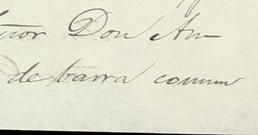 ñor Don An-
de barra comun